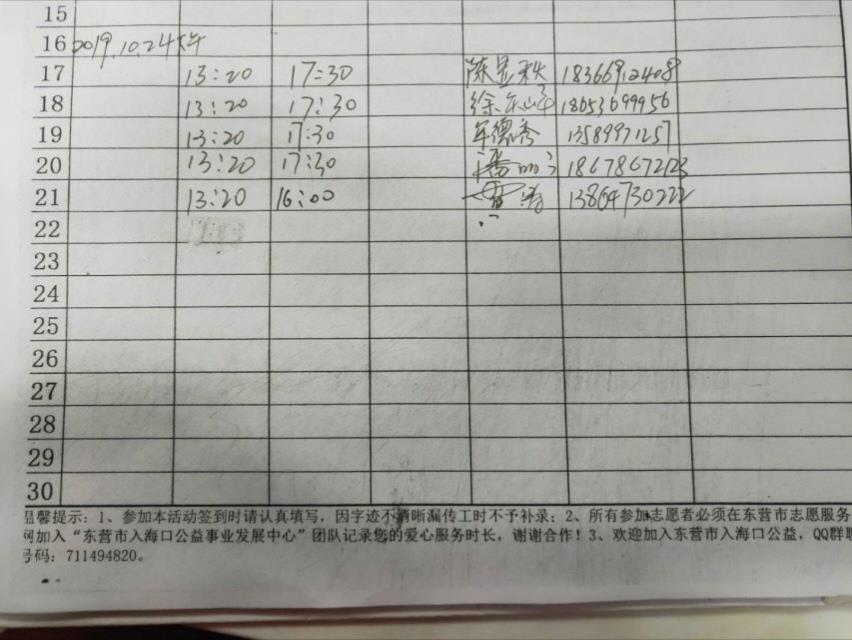 15
16 2019.10.24下午
17 13:20 17:30 陈显秋 18366912408
18 13:20 17:30 徐东峰 18653699956
19 13:20 17:30 德秀 13589971257
20 13:20 17:30 潘 18678672123
21 13:20 16:00 13864730222
22
23
24
25
26
27
28
29
30
温馨提示：1、参加本活动签到时请认真填写，因字迹不清晰漏传工时不予补录；2、所有参加志愿者必须在东营市志愿服务
网加入“东营市入海口公益事业发展中心”团队记录您的爱心服务时长，谢谢合作！3、欢迎加入东营市入海口公益，QQ群联
号码：711494820。